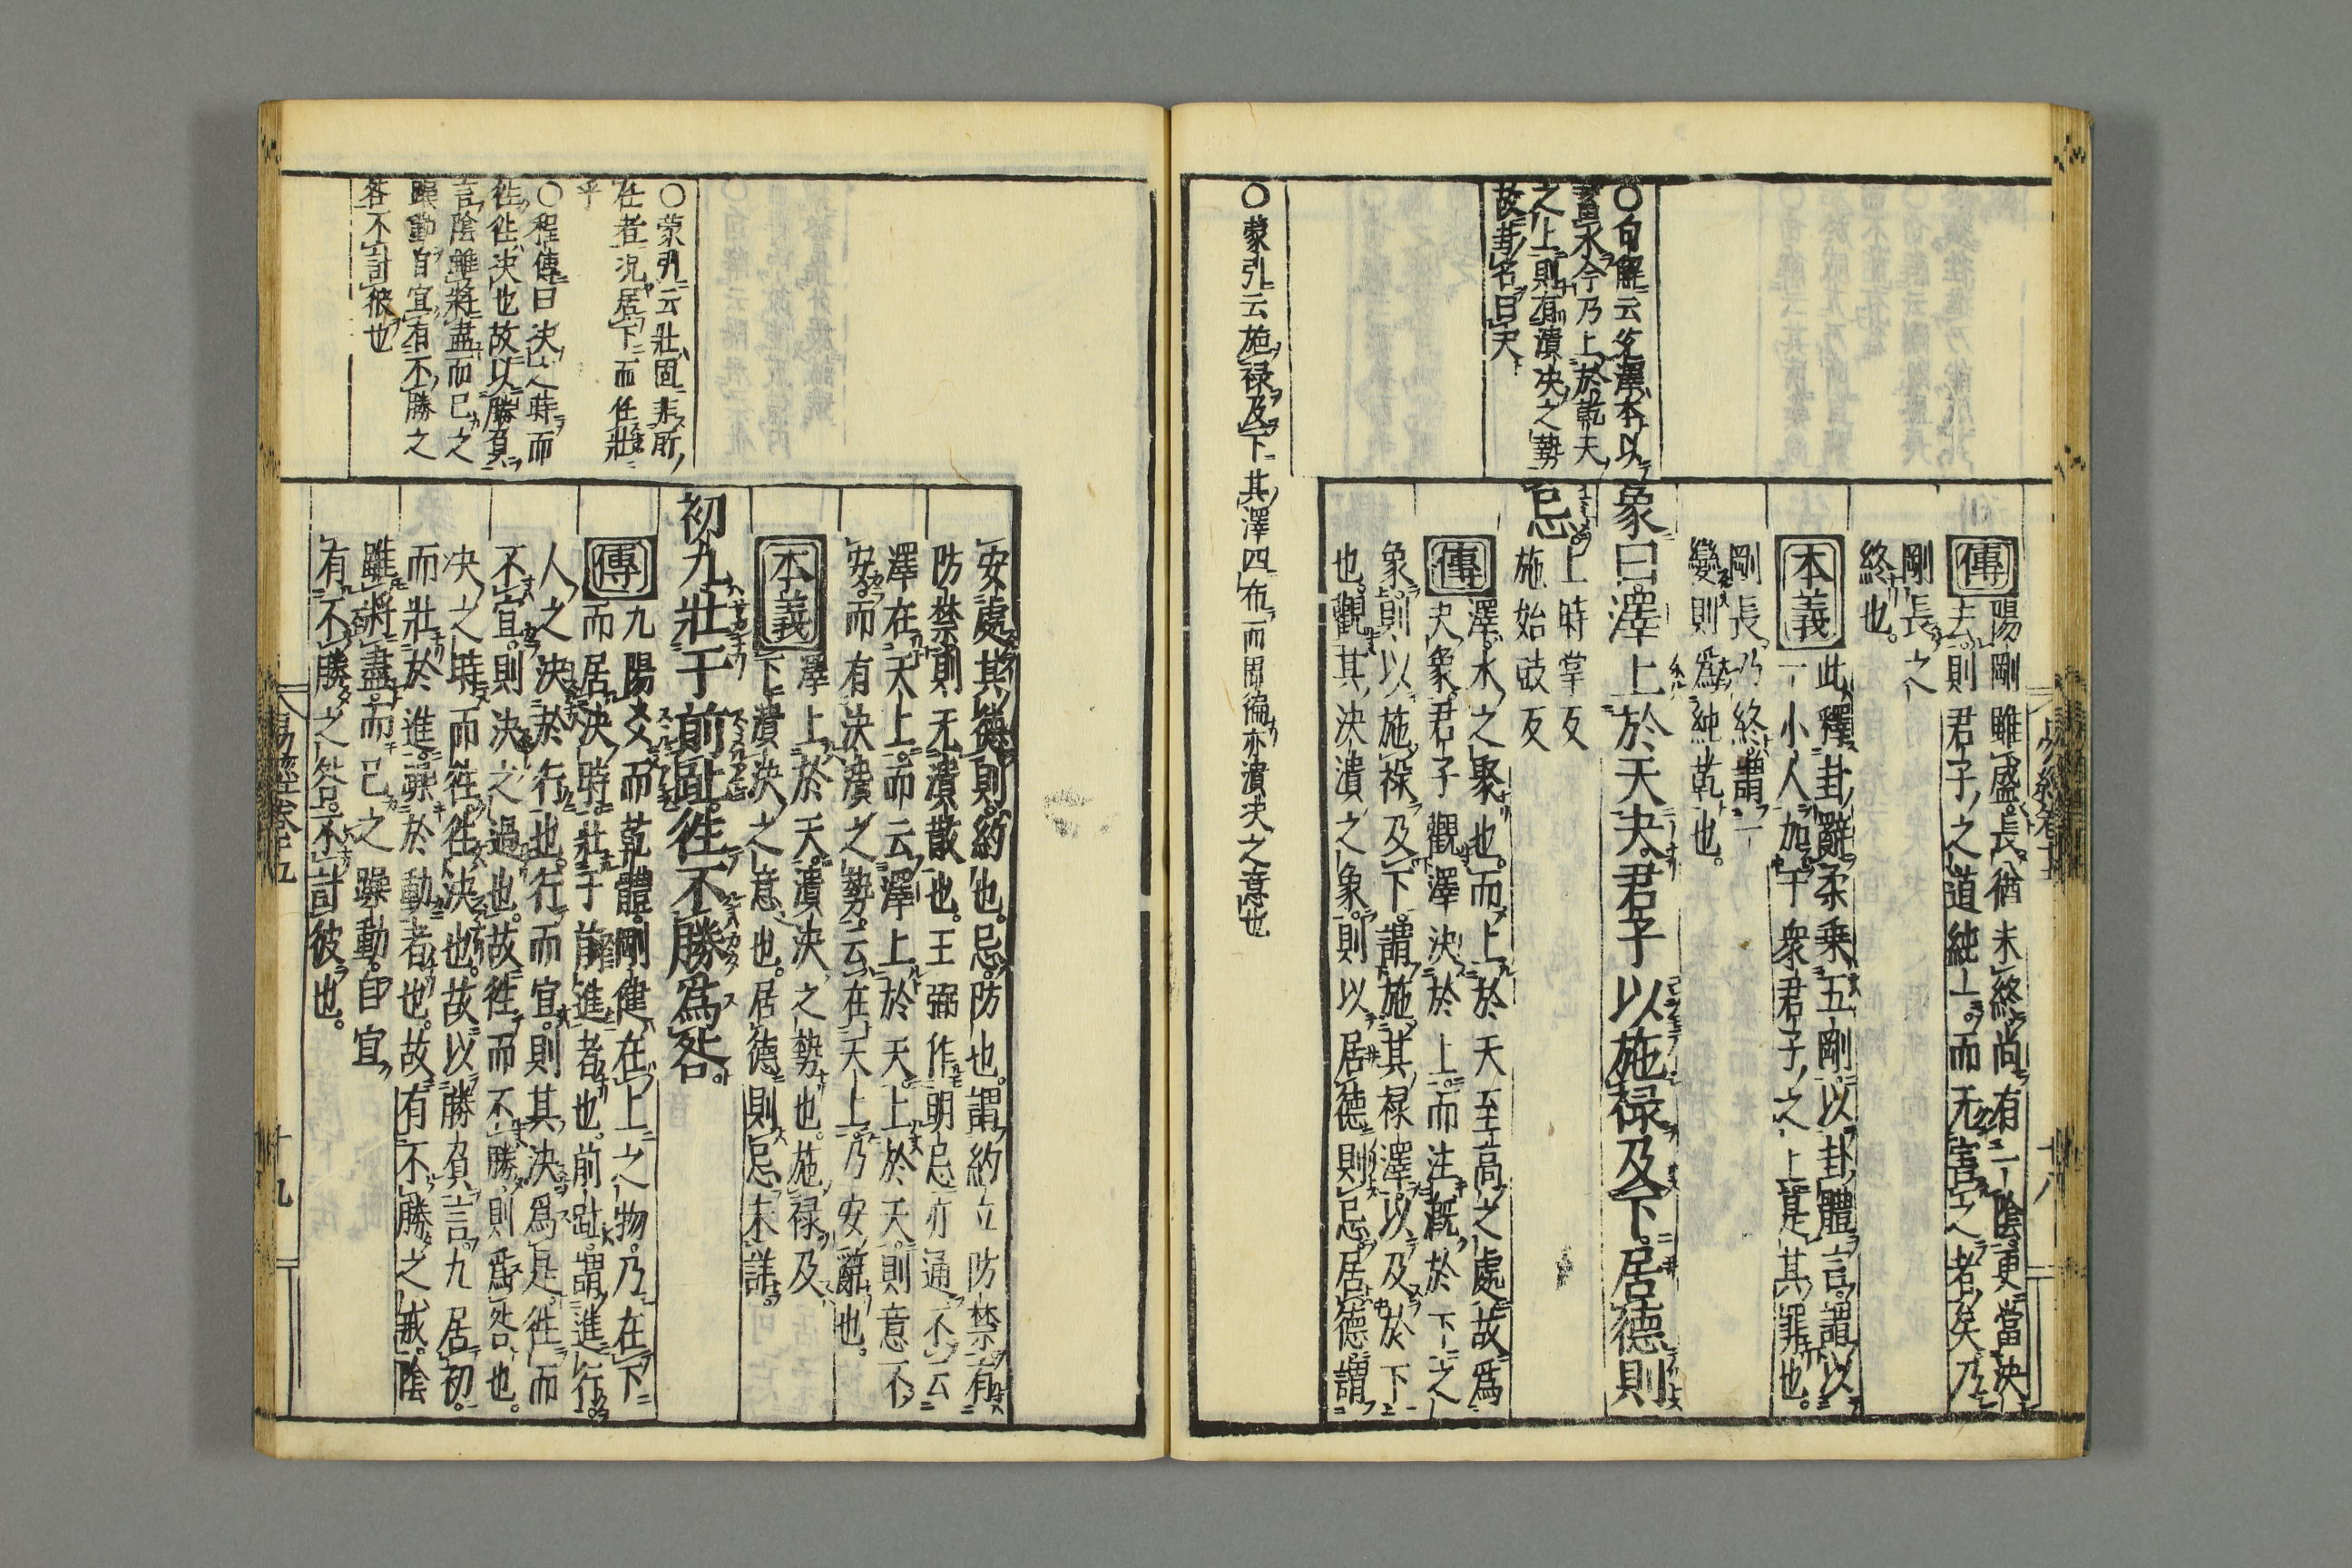 傳陽剛雖盛長猶未終尚有一陰更當決
去則君子之道純一而无害之者矣乃
剛長之
終也
本義此釋卦辭柔乗五剛以卦體言謂以
一小人加于衆君子之上是其罪也
剛長乃終謂一
變則爲純乾也
〇句解云兊澤本以
畜水今乃上於乾天
之上則有潰決之勢
故卦名曰夬
象曰澤上於天夬君子以施禄及下居德則
忌
上時掌反
施始豉反
傳澤水之聚也而上於天至高之處故爲
夬象君子觀澤決於上而注漑於下之
象則以施禄及下謂施其禄澤以及於下
也觀其決潰之象則以居德則忌居德謂
〇蒙引云施禄及下其澤四布而周徧亦潰决之意也
易經卷五
十八
安處其德則約也忌防也謂約立防禁有
防禁則无潰散也王弼作明忌亦通不云
澤在天上而云澤上於天上於天則意不
安而有決潰之勢云在天上乃安辭也
本義澤上於天潰決之勢也施禄及
下潰決之意也居德則忌未詳
〇蒙引云壯固非所
任者况居下而任壯
乎
初九壯于前趾徃不勝爲咎
傳九陽爻而乾體剛健在上之物乃在下
而居決時壯于前進者也前趾謂進行
人之決於行也行而宜則其決爲是徃而
不宜則決之過也故徃而不勝則爲咎也
夬之時而徃徃決也故以勝負言九居初
而壯於進躁於動者也故有不勝之戒陰
雖將盡而已之躁動自宜
有不勝之咎不計彼也
〇程傳曰决之時而
徃徃決也故以勝負
言陰雖將盡而已之
躁動自宜有不勝之
咎不計彼也
易經卷五
十九